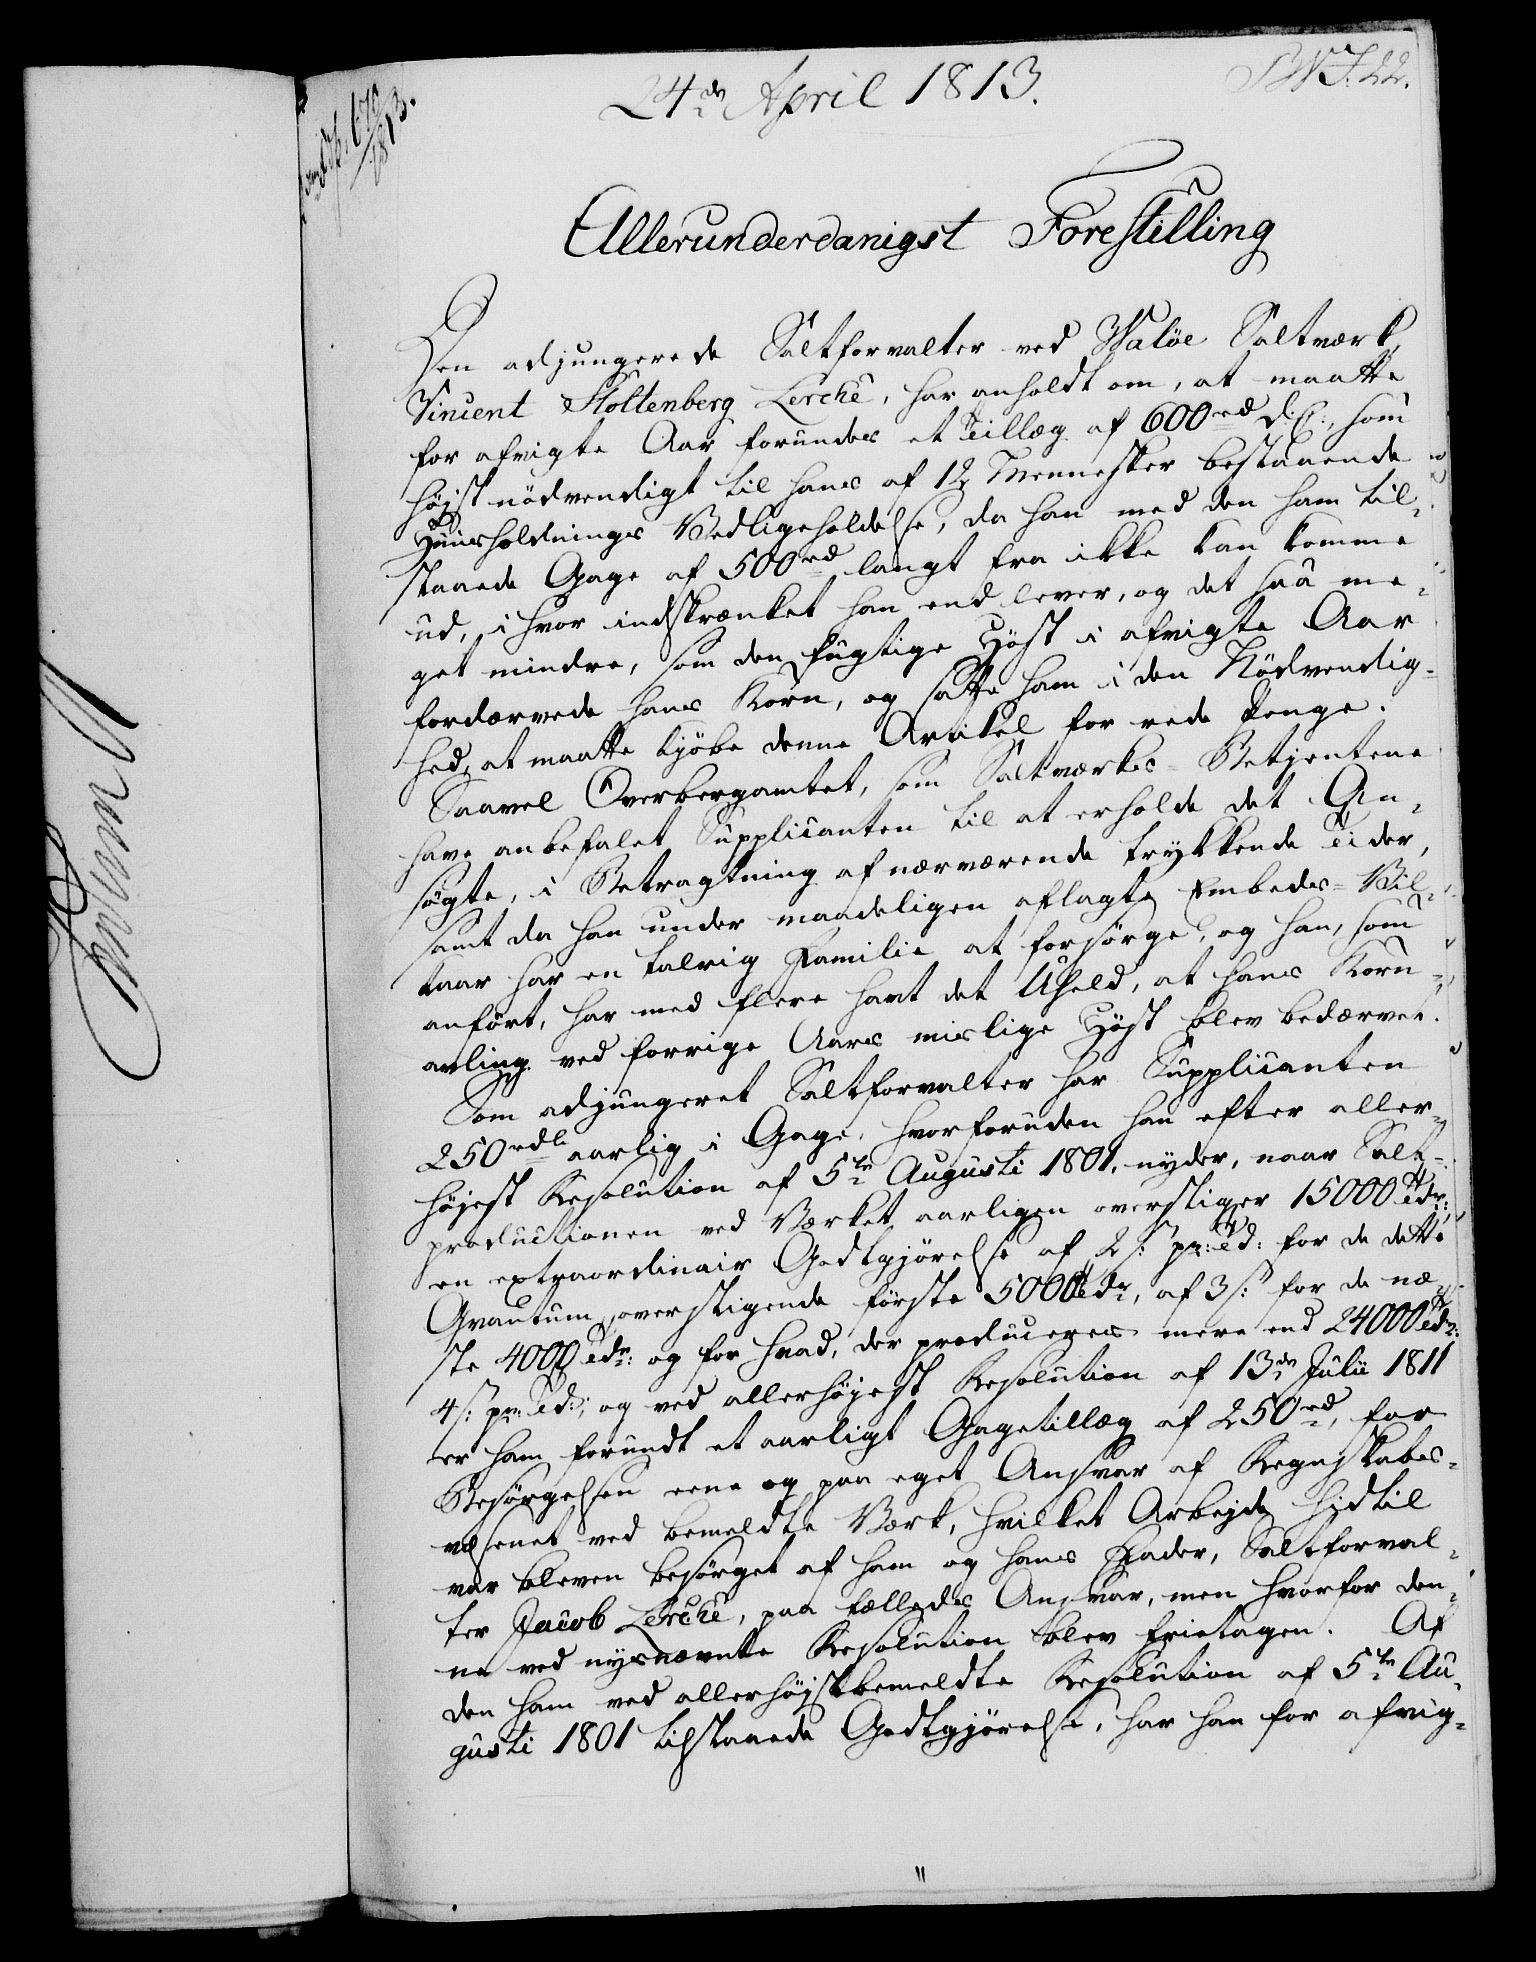 24de April 1813.
No 22.
670
1813.
Allerunderdanigst Forestilling
Den adjungerede Saltforvalter ved Waløe Saltværk,
Vincent Stoltenberg Lerche, har anholdt om, at maatte
for afvigte Aar forundes et Tillæg af 600rd d: C:, som
højst nödvendigt til hans af 12 Mennesker bestaaende
Huusholdnings Vedligeholdelse, da han med den ham til-
staaede Gage af 500rd langt fra ikke kan komme
ud, i hvor indskrænket han end lever, og det saa me-
get mindre, som den fugtige Høst i afvigte Aar
fordærvede hans Korn, og satte ham i den Nödvendig-
hed, at maatte kjöbe denne Artikel for rede Penge.
Saavel Overbergamtet, som Saltværks-Betjentene
have anbefalet Supplicanten til at erholde det An-
søgte, i Betragtning af nærværende trykkende Tider,
samt da han under maadeligen aflagte Embeds-Vil-
kaar har en talrig Familie at forsörge, og han, som
anfört, har med flere havt det Uheld, at hans Korn-
avling ved forrige Aars mislige Høst blev bedærvet.
Som adjungeret Saltforvalter har Supplicanten
250rdl aarlig i Gage, hvorforuden han efter aller-
højest Resolution af 5te Augusti 1801, nyder, naar Salt-
productionen ved Værket aarligen overstiger 15000 Tdr:,
en extraordinair Godtgjörelse af 2 s: pr: Td: for de dette
Qvantum overstigende förste 5000 Tdr, af 3 s: for de næ-
ste 4000 Tdr: og for hvad, der produceres mere end 24000 Tdr:
4 s: pr: Td:; og ved allerhøjest Resolution af 13de Julii 1811
er ham forundt et aarligt Gagetillæg af 250rd, for
Besörgelsen ene og paa eget Ansvar af Regnskabs-
væsenet ved bemeldte Værk, hvilket Arbejde hidtil
var bleven besörget af ham og hans Fader, Saltforval-
ter Jacob Lerche, paa fælleds Ansvar, men hvorfor den-
ne ved nysnævnte Resolution blev fritagen. Af
den ham ved allerhøjstbemeldte Resolution af 5te Au-
gusti 1801 tilstaaede Godtgjörelse, har han for afvig-